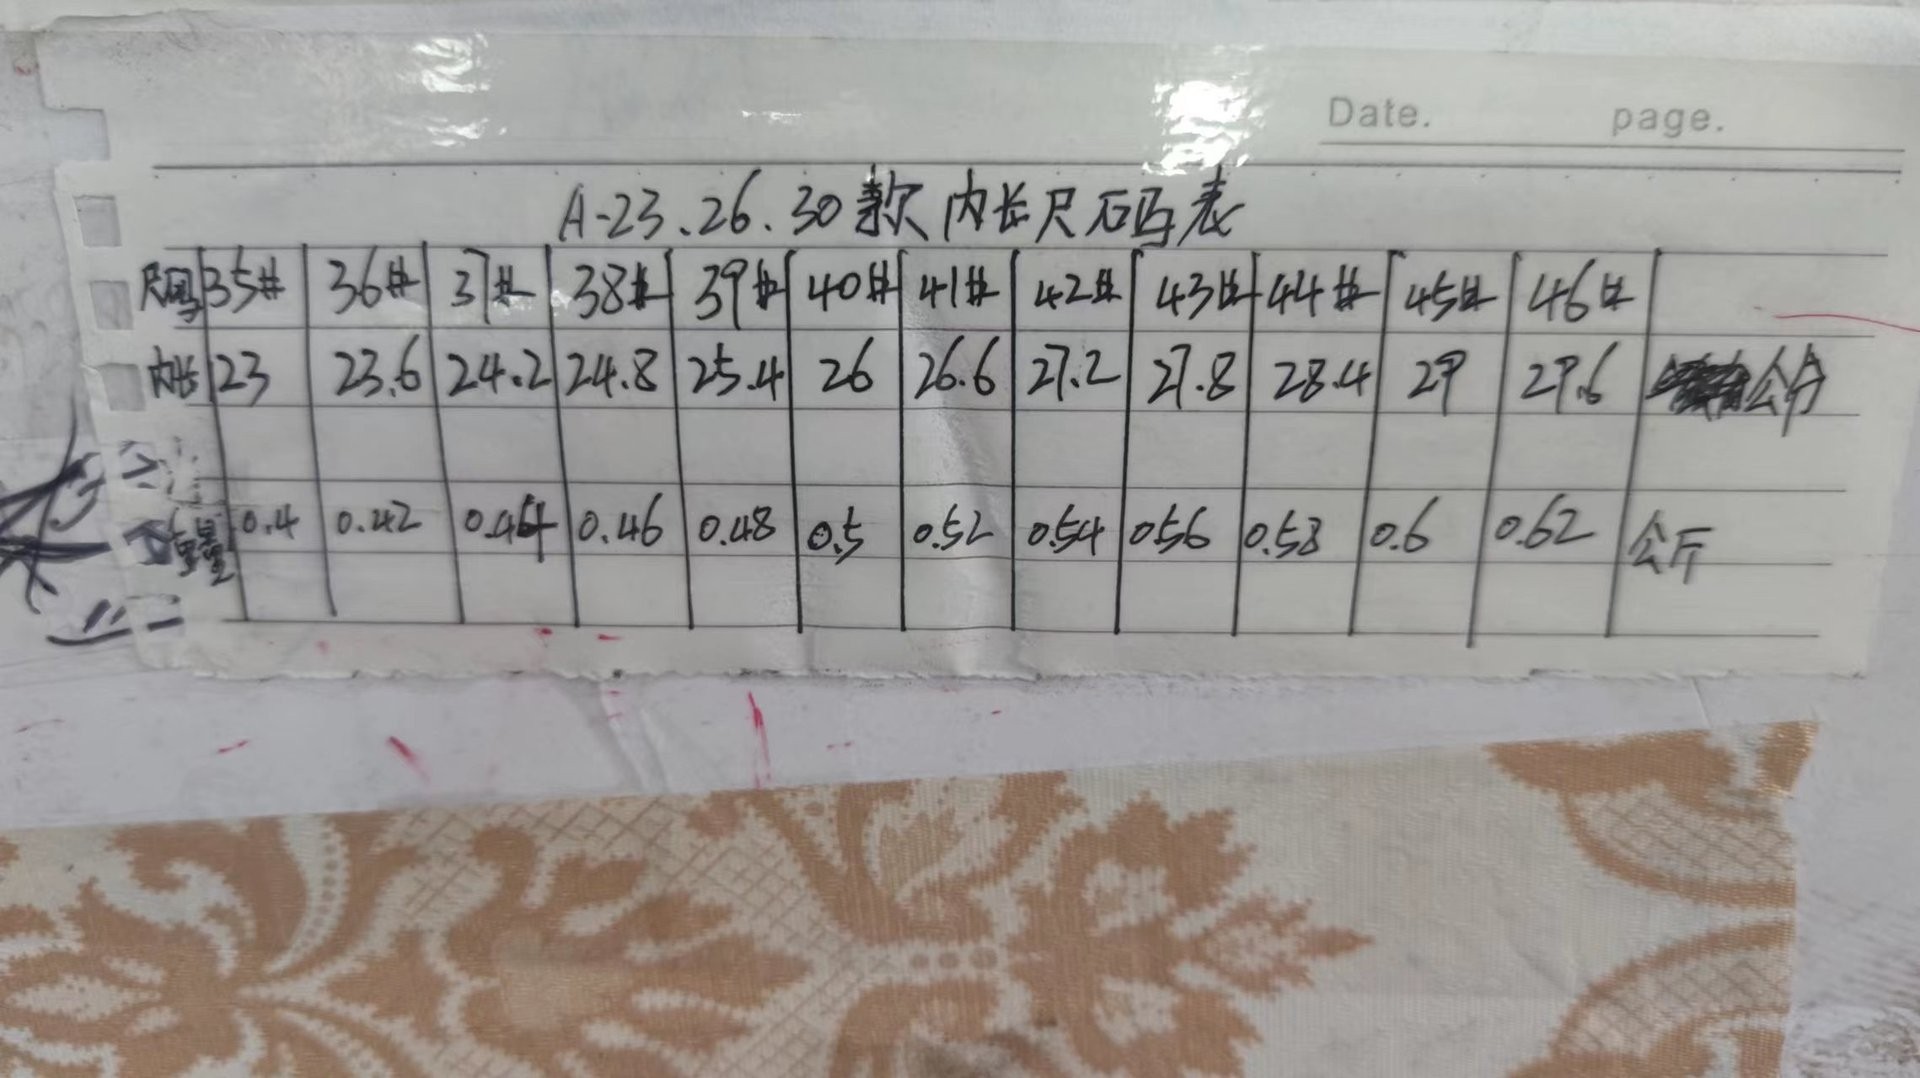 Date. page.
A-23.26.30款内长尺码表
尺码 35# 36# 37# 38# 39# 40# 41# 42# 43# 44# 45# 46#
内长 23 23.6 24.2 24.8 25.4 26 26.6 27.2 27.8 28.4 29 29.6 公分
重量 0.4 0.42 0.44 0.46 0.48 0.5 0.52 0.54 0.56 0.58 0.6 0.62 公斤